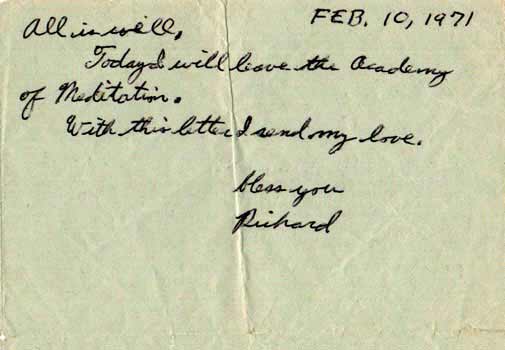 FEB. 10, 1971
All is well.
Today I will leave the Academy
of Meditation.
With this letter I send my love.
bless you
Richard